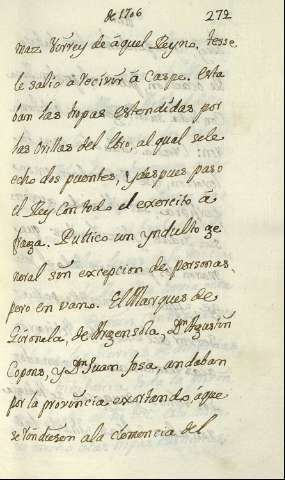 de 1706 272
maz Virrey de áquel Reyno, Tesse
le salio á recivir á Caspe. Esta
ban las tropas estendidas por
las orillas del Ebro, al qual sele
echo dos puentes, y despues paso
el Rey con todo el exercito á
fraga. Publico un yndulto ge
neral sin excepcion de personas,
pero en vano. El Marques de
Gironela, de Argensola, Dn Agustin
Copons, y Dn Juan Josa, andaban
por la provincia exortando, áque
se rindiesen ala clemencia del